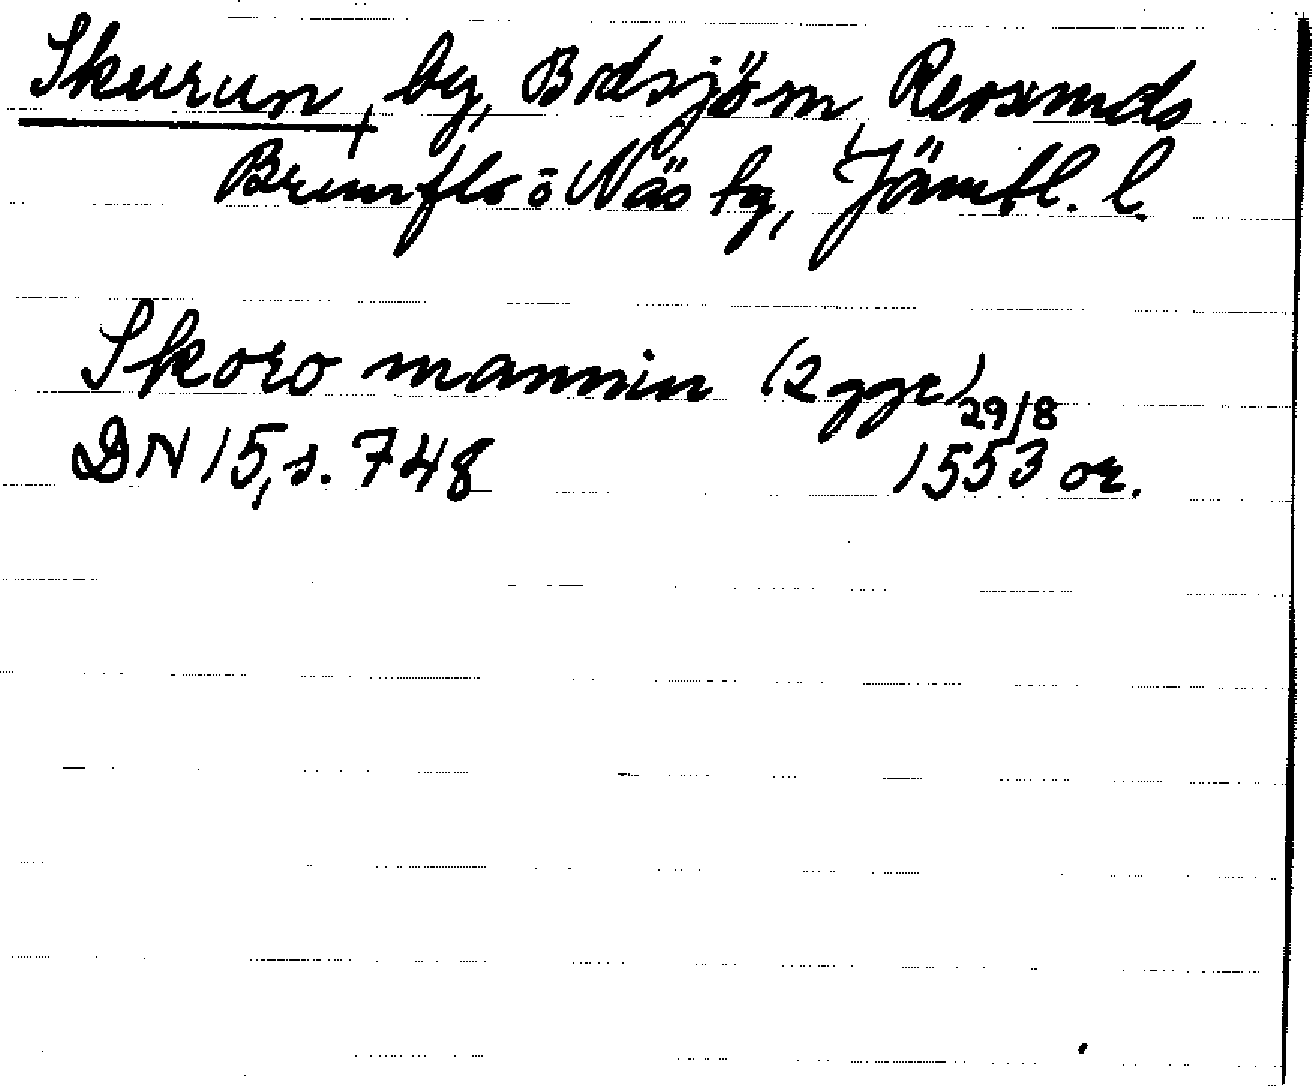 Skurun, by, Bodsjö sn, Revsunds
Brunflo o Näs tg, Jämtl. l.
Skoro mannin (2 ggr) 29/8
DN 15, s. 748 1553 or.